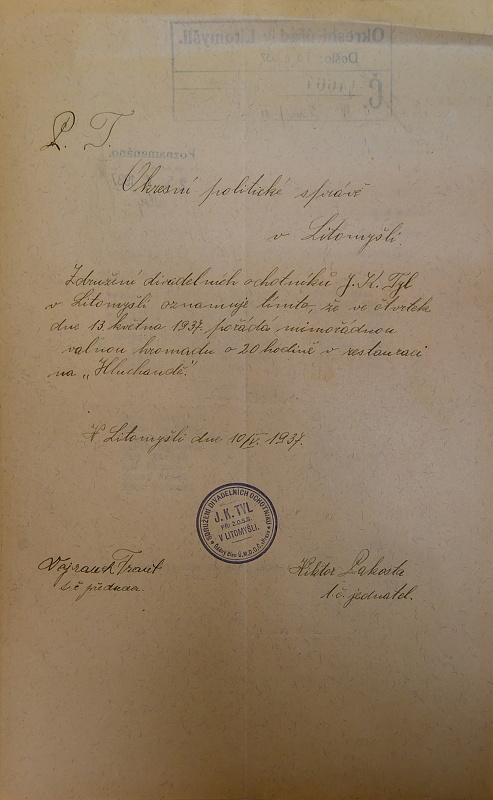 P. T.
Okresní politické správě
v Litomyšli.
Združení divadelních ochotníků J. K. Tyl
v Litomyšli oznamuje tímto, že ve čtvrtek
dne 13 května 1937. pořádá mimořádnou
valnou hromadu o 20 hodině v restauraci
na „Hluchandě".
V Litomyšli dne 10/V. 1937.
SDRUŽENÍ DIVADELNÍCH OCHOTNÍKŮ
J. K. TYL
V LITOMYŠLI.
t. č. předseda.
Viktor
t. č. jednatel.
Okresní úřad v Litomyšli.
Došlo:
Č.
Poznamenáno.